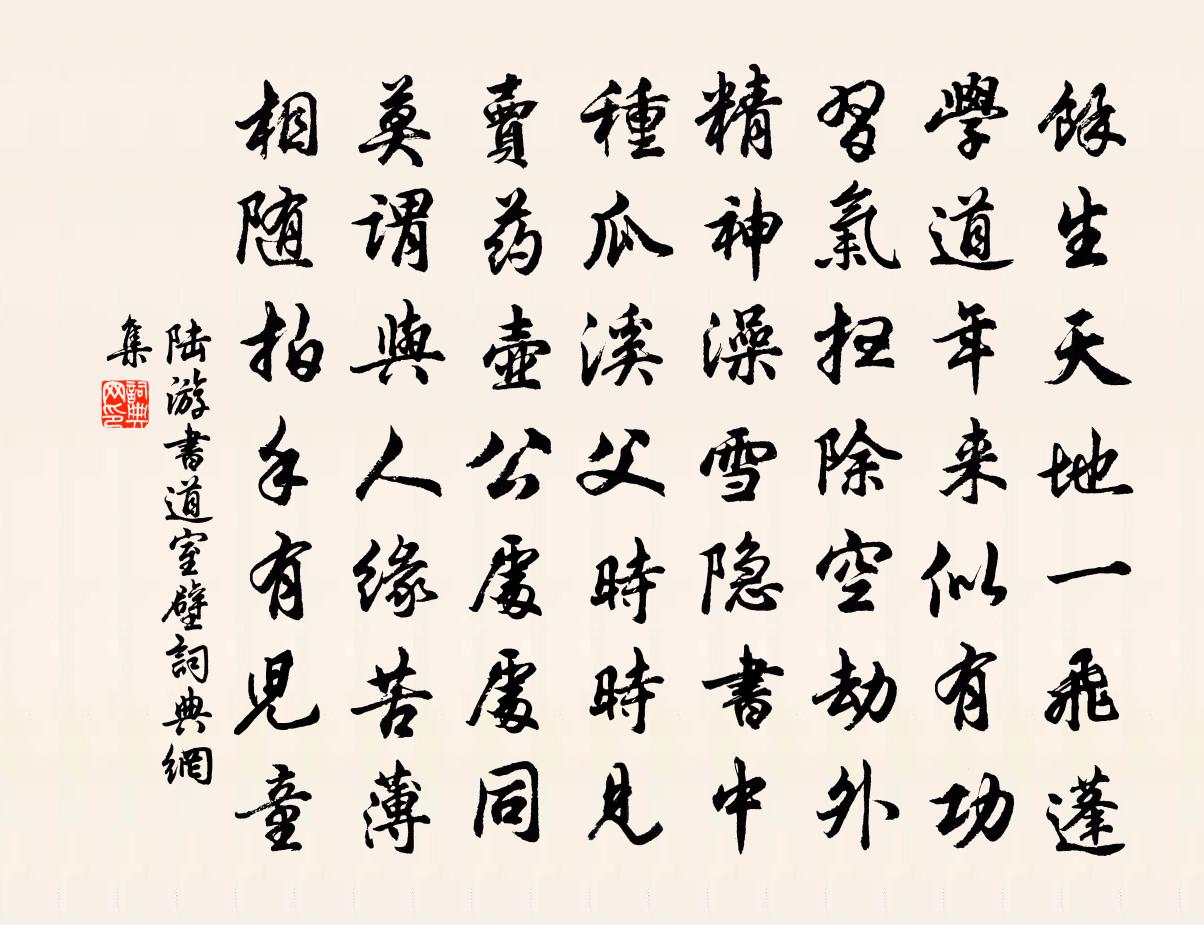 餘生天地一飛蓬
學道年来似有功
習氣掃除空劫外
精神澡雪隐書中
種瓜溪父時時見
賣药壺公處處同
莫謂與人緣苦薄
相随拍手有児童
陆游書道室壁詞典網
集
詞典
网印